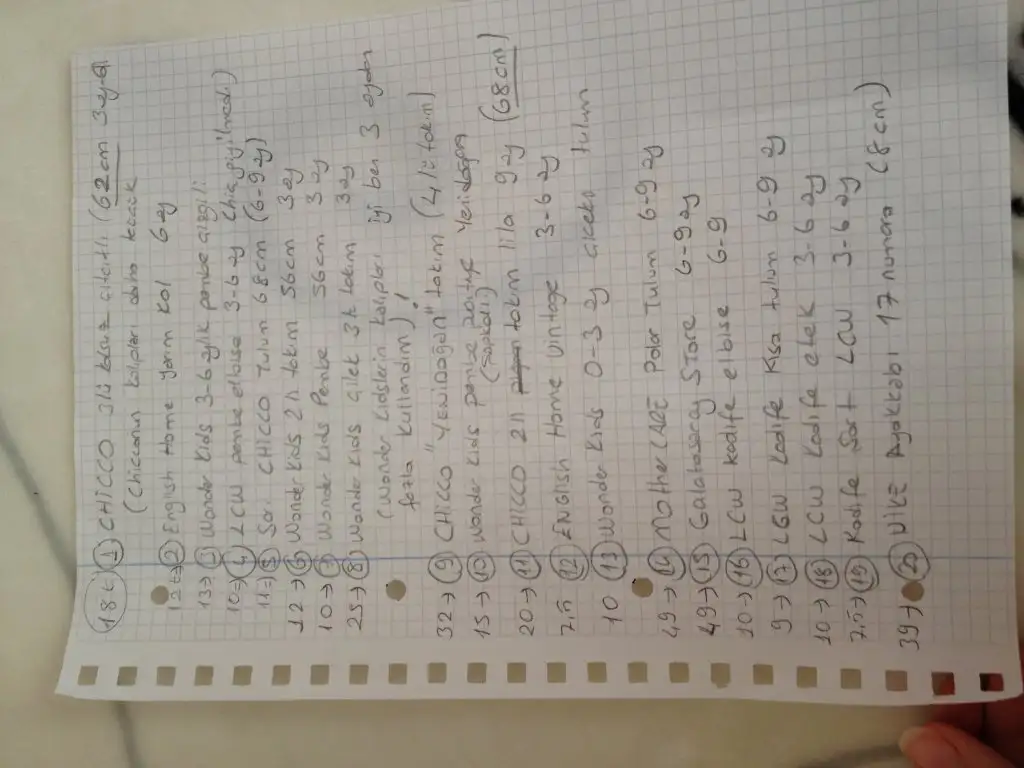 18€ ① CHICCO 3lü kolsuz çıtçıtlı (62 cm 3 aya
(Chicconun kalıpları daha küçük
12 → ② English Home yarım kol 6 ay
13 → ③ Wonder Kids 3-6 aylık pembe çizgili
10 → ④ LCW pembe elbise 3-6 ay (hiç giyilmedi)
11 → ⑤ Sarı CHICCO tulum 68 cm (6-9 ay)
12 → ⑥ Wonder Kids 2li takım 56cm 3 ay
10 → ⑦ Wonder Kids Pembe 56cm 3 ay
25 → ⑧ Wonder Kids çilek 3lü takım 3 ay
(Wonder Kidslerin kalıpları iyi ben 3 aydan
fazla kullandım)!
32 → ⑨ CHICCO "YENİDOĞAN" takım (4 lü takım)
15 → ⑩ Wonder Kids pembe penye Yenidoğan
(Şapkalı)
20 → ⑪ CHICCO 2li takım lila 9 ay (68cm)
7.5 ⑫ ENGLISH Home Vintage 3-6 ay
10 ⑬ Wonder Kids 0-3 ay çiçekli tulum
49 → ⑭ MotherCARE Polar Tulum 6-9 ay
49 → ⑮ Galatasaray STore 6-9 ay
10 → ⑯ LCW kadife elbise 6-9
9 → ⑰ LCW Kadife Kısa tulum 6-9 ay
10 → ⑱ LCW Kadife etek 3-6 ay
7.5 → ⑲ Kadife Şort LCW 3-6 ay
39 → ⑳ NİKE Ayakkabı 17 numara (68 cm)